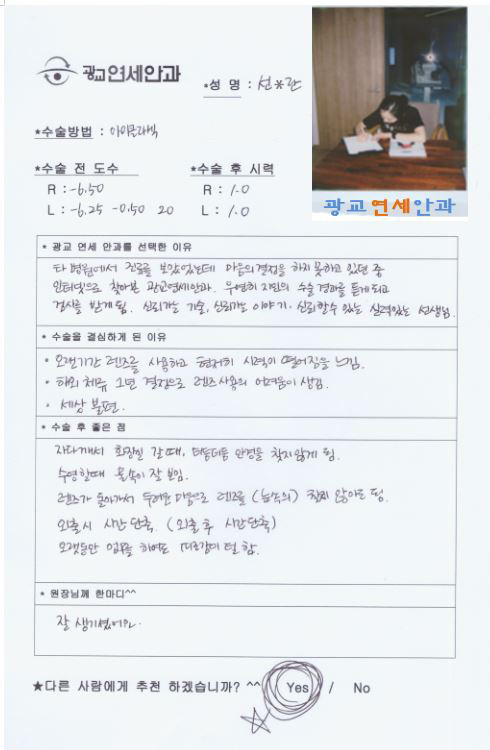 광교연세안과
*성 명 : 선*란
*수술방법 : 아이큐라섹
*수술 전 도수
*수술 후 시력
R : -6.50
R : 1.0
L : -6.25 -0.50 20
L : 1.0
광교연세안과
* 광교 연세 안과를 선택한 이유
타 병원에서 진료를 보았었는데 마음의 결정을 하지 못하고 있던 중
인터넷으로 찾아본 광교연세안과. 우연히 지인의 수술 경과를 듣게되고
검사를 받게 됨. 신뢰가는 기술, 신뢰가는 이야기. 신뢰할수 있는 실력있는 선생님.
* 수술을 결심하게 된 이유
• 오랜기간 렌즈를 사용하고 현저히 시력이 떨어짐을 느낌.
• 해외 체류 1년 결정으로 렌즈사용의 어려움이 생김.
• 세상 불편.
* 수술 후 좋은 점
자다깨서 화장실 갈 때, 더듬더듬 안경을 찾지않게 됨.
수영할때 물속이 잘 보임.
렌즈가 돌아가서 두려운 마음으로 렌즈를 (눈속의) 찾지 않아도 됨.
외출시 시간 단축. (외출 후 시간단축)
오랫동안 업무를 하여도 피로감이 덜 함.
* 원장님께 한마디^^
잘 생기셨어요.
★다른 사람에게 추천 하겠습니까? ^^ Yes / No